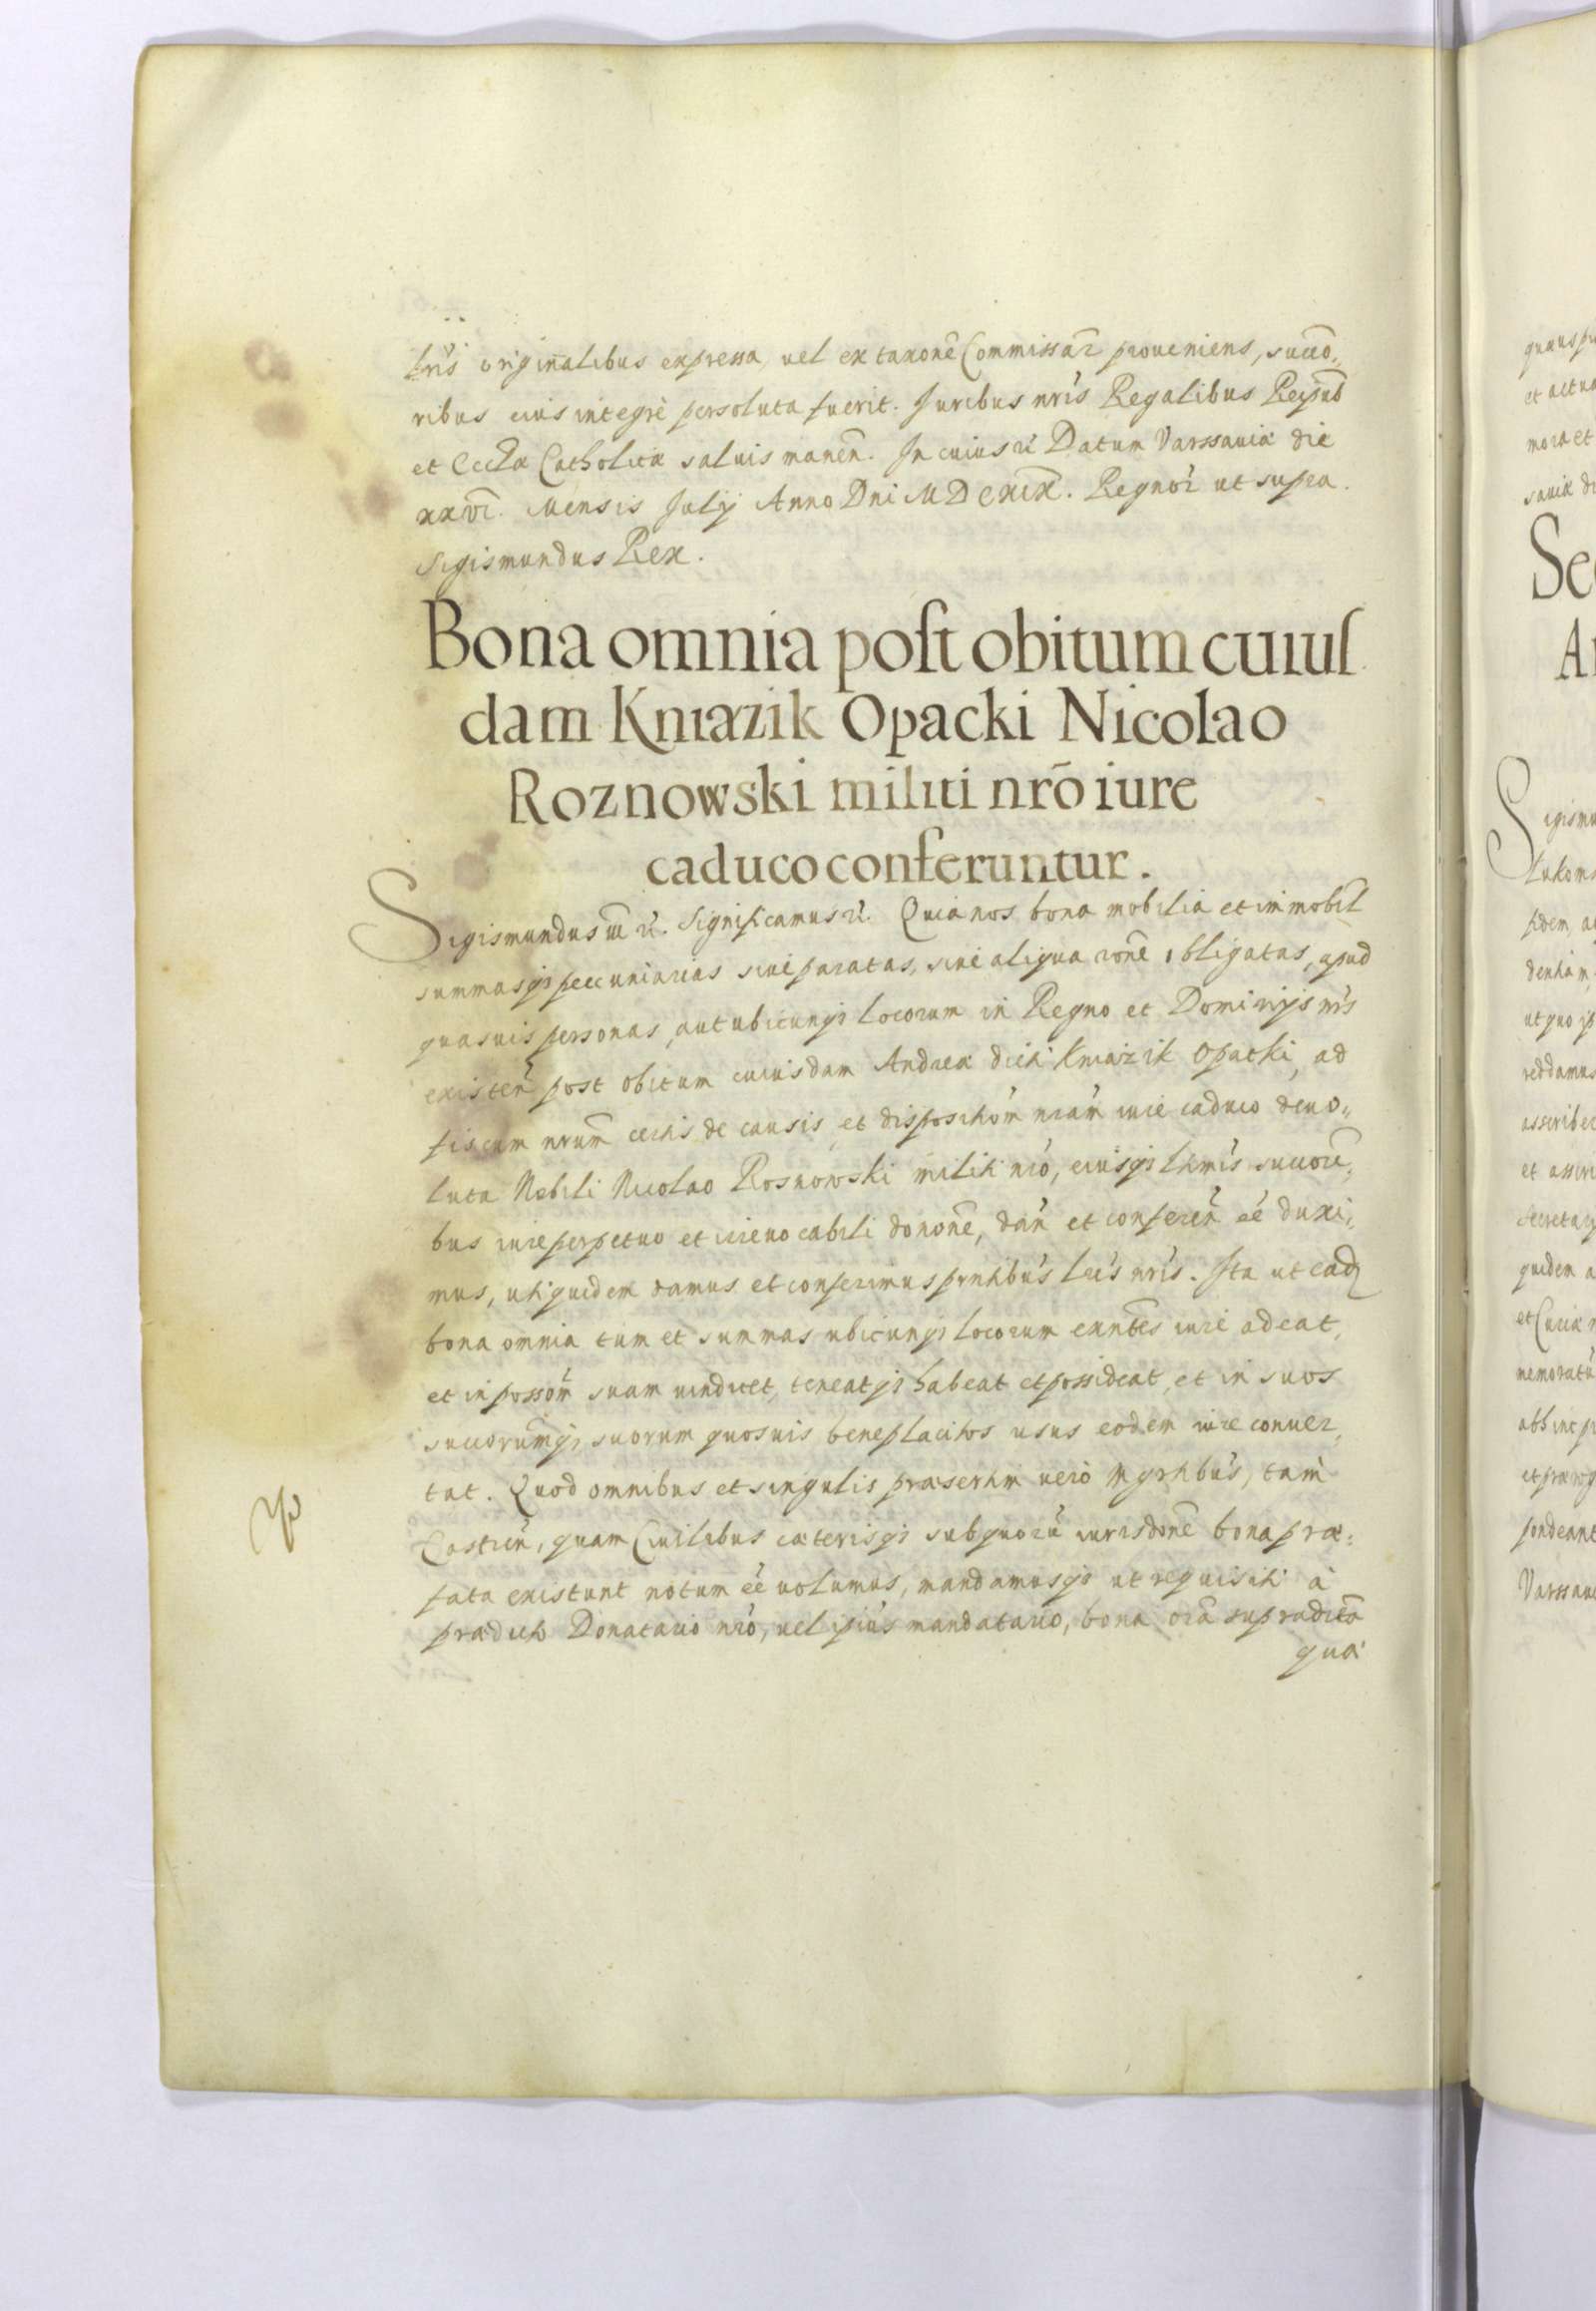 lrīs originalibus expressa, uel ex taxonē Commissar proueniens, succō„
ribus eius integrè persoluta fuerit. Iuribus nrīs Regalibus Reipub
et Ecclæ Catholicæ saluis manēn. In cuius rī Datum Varssauiæ die
xxvi. Mensis Julij Anno Dnī MDCXIX. Regnor ut supra.
Sigismundus Rex.
Bona omnia poſt obitum cuiuſ
dam Kniazik Opacki Nicolao
Roznowski militi nrō iure
caduco conferuntur.
Sigismundus iii rī. Significamus rī. Quia nos bona mobilia et immobil
summasqȝ peccuniarias siue paratas, siue aliqua ronē obligatas, apud
quasuis personas, aut ubicunqȝ locorum in Regno et Dominijs nrīs
existen̄ post obitum cuiusdam Andreæ dicti Kniazik Opacki, ad
fiscum nrum̄ certis de causis, et dispositiom̄ nram̄ iure caduco deuo„
luta Nobili Nicolao Rosnowski militi nrō, eiusqȝ ltimīs succorī„
bus iure perpetuo et irreuocabili dononē, dan̄ et conferen̄ eē duxi„
mus, uti quidem damus et conferimus pnntibūs lrīs nrīs. Ita ut eadȝ
bona omnia tum et summas ubicunqȝ locorum exnntēs iure adeat,
et in possom̄ suam uindicet, teneatqȝ habeat et possideat, et in suos
succorum̄qȝ suorum quosuis beneplacitos usus eodem iure conuer„
tat. Quod omnibus et singulis præsertim uero Mgrtibūs, tam
Castren̄, quam Ciuilibus cæterisqȝ sub quorū iurisdonē bona præ„
fata existunt notum eē uolumus, mandamusqȝ ut requisiti à
prædicto Donatario nrō, uel ipiūs mandatario, bona oīa supradicta
quæ